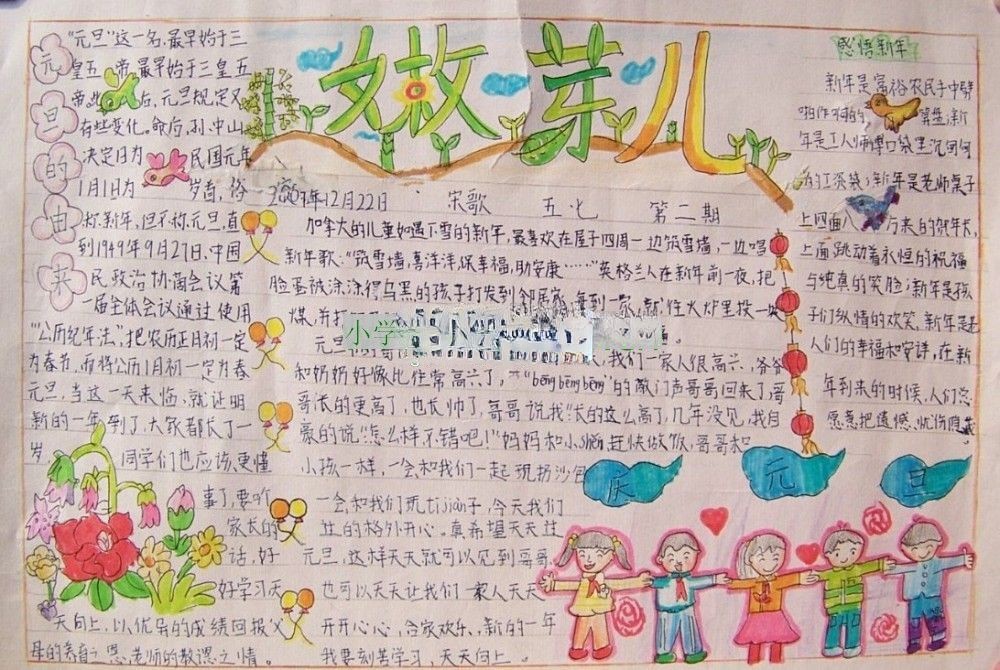 嫩芽儿
2009年12月22日 宋歌 五.七 第二期
元旦的由来
"元旦"这一名,最早始于三
皇五帝,最早始于三皇五
后,元旦规定又
有些变化。命后,孙中山
决定日为 民国元年
1月1日为 岁首,俗
称新年,但不称元旦,直
到1949年9月27日,中国
民政治协商会议第
一届全体会议通过 使用
"公历纪年法",把农历正月初一定
为春节,而将公历1月初一定为春
元旦,当这一天来临,就证明
新的一年到了,大家都长了一
岁 同学们也应该更懂
事了,要听
家长的
话,好
好学习天
天向上,以优异的成绩回报父
母的养育之恩,老师的教恩之情。
加拿大的儿童如遇下雪的新年,最喜欢在屋子四周一边筑雪墙,一边唱
新年歌:"筑雪墙,喜洋洋,保幸福,助安康……"英格兰人在新年前一夜,把
脸蛋被涂涂得乌黑的孩子打发到邻居家,每到一家,就往火炉里投一块
煤,并打
小学
元旦
我们一家人很高兴,爷爷
和奶奶好像比往常高兴了,"bēng bēng bēng"的敲门声哥哥回来了,哥
哥长的更高了,也长帅了,哥哥说我"长的这么高了,几年没见,我自
豪的说"怎么样不错吧!"妈妈和小shěn赶快做饭,哥哥和
小孩一样,一会和我们一起玩扔沙包
一会和我们玩tījiànzi,今天我们
过的格外开心。真希望天天过
元旦,这样天天就可以见到哥哥
也可以天天让我们一家人天天
开开心心,合家欢乐、新的一年
我要刻苦学习,天天向上。
感悟新年
新年是富裕农民手中噼
啪作响的 算盘;新
年是工人
的工资袋;新年是老师桌子
上四面八 方来的贺年卡,
上面跳动着永恒的祝福
与纯真的笑脸;新年是孩
子们纵情的欢笑,新年是老
人们的幸福和安详,在新
年到来的时候,人们总
愿意把遗憾、忧伤隐藏
庆元旦